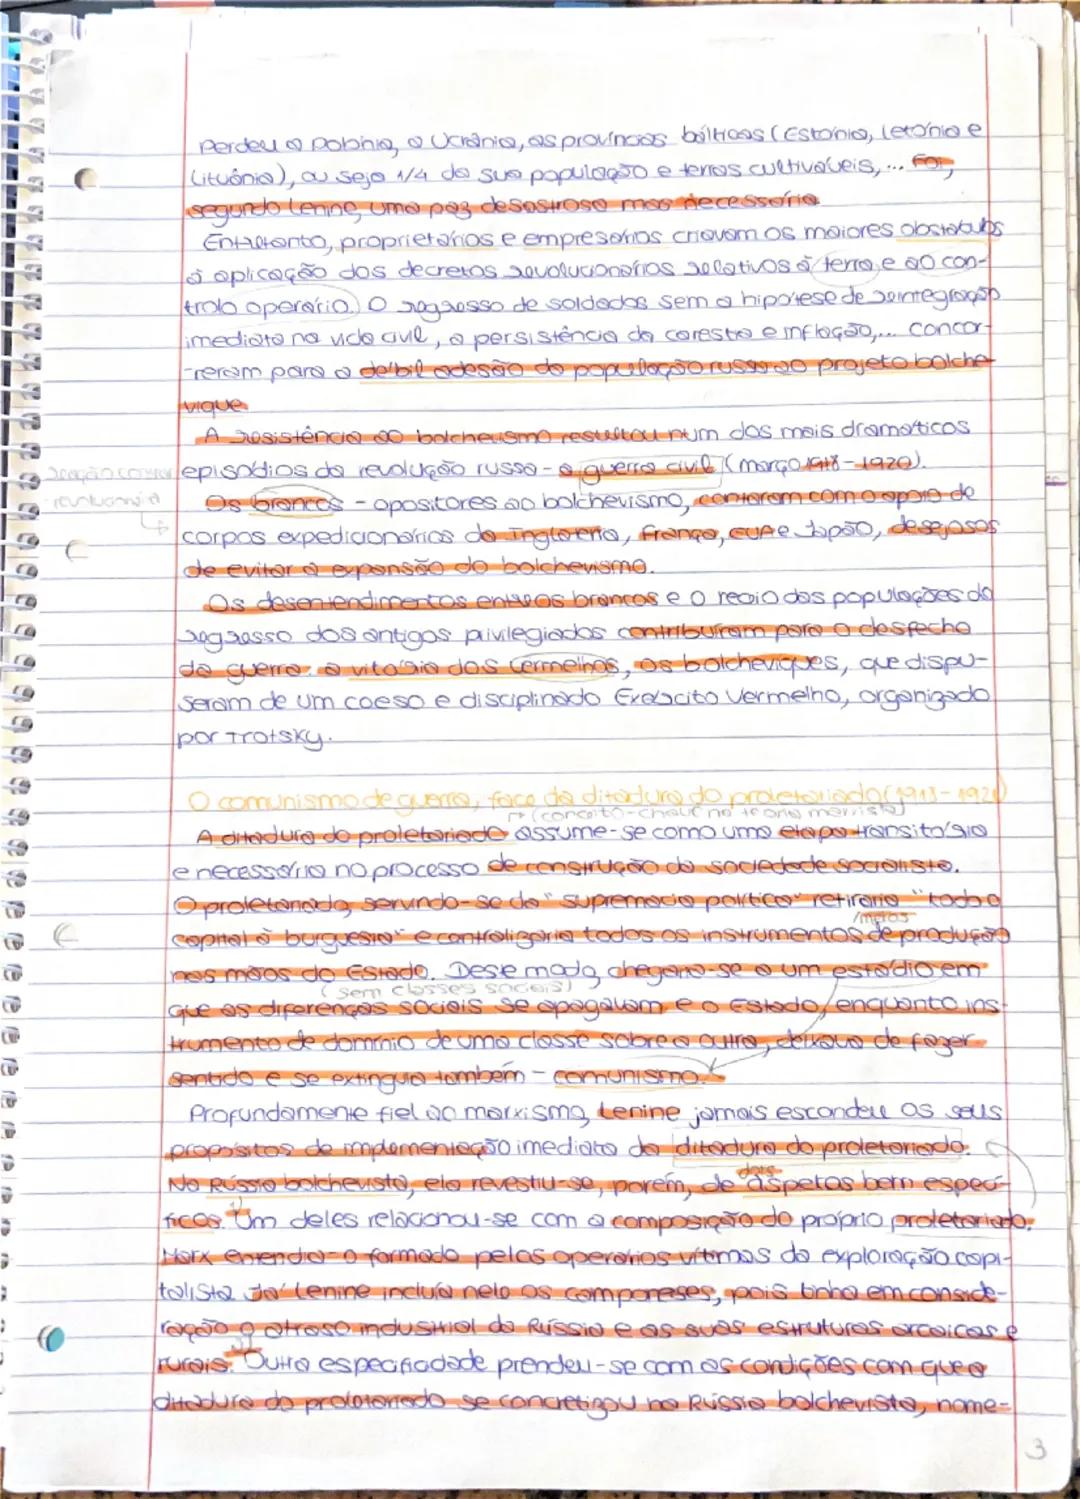 Perdeu a Polónia, a Ucrânia, as províncias bálticas (Estónia, Letónia e
Lituânia), ou seja 1/4 da sua população e terras cultiváveis,... Foi,
segundo Lenine, uma paz desastrosa mas necessária.
Entretanto, proprietários e empresários criavam os maiores obstáculos
à aplicação dos decretos revolucionários relativos à terra e ao con-
trolo operário. O regresso de soldados sem a hipótese de reintegração
imediata na vida civil, a persistência da carestia e inflação,... concor-
-reram para a débil adesão da população russa ao projeto bolche-
vique.
A resistência ao bolchevismo resultou num dos mais dramáticos
episódios da revolução russa - a guerra civil (março 1918-1920).
reação contra
Os brancos - opositores ao bolchevismo, contaram com o apoio de
corpos expedicionários da Inglaterra, França, EUA e Japão, desejosos
de evitar a expansão do bolchevismo.
Os desentendimentos entre os brancos e o receio das populações do
regresso dos antigos privilegiados contribuíram para o desfecho
da guerra: a vitória dos Vermelhos, os bolcheviques, que dispu-
seram de um coeso e disciplinado Exército Vermelho, organizado
por Trotsky.
O comunismo de guerra, face da ditadura do proletariado (1918-1921)
(conceito-chave na teoria marxista)
A ditadura do proletariado assume-se como uma etapa transitória
e necessária no processo de construção da sociedade socialista.
O proletariado, servindo-se da "supremacia política" retiraria "todo o
/meios
capital à burguesia" e centralizaria todos os instrumentos de produção
nas mãos do Estado. Desse modo, chegaria-se a um estádio em
(sem classes sociais)
que as diferenças sociais se apagavam e o Estado, enquanto ins-
trumento de domínio de uma classe sobre a outra, deixava de fazer
sentido e se extinguia também - comunismo.
Profundamente fiel ao marxismo, Lenine jamais escondeu os seus
propósitos de implementação imediata da ditadura do proletariado.
dois
Na Rússia bolchevista, ela revestiu-se, porém, de aspetos bem especí-
ficos. Um deles relacionou-se com a composição do próprio proletariado.
Marx entendia-o formado pelos operários vítimas da exploração capi-
talista. Já Lenine incluía nele os camponeses, pois tinha em conside-
ração o atraso industrial da Rússia e as suas estruturas arcaicas e
rurais. Outra especificidade prendeu-se com as condições com que a
ditadura do proletariado se concretizou na Rússia bolchevista, nome-
3